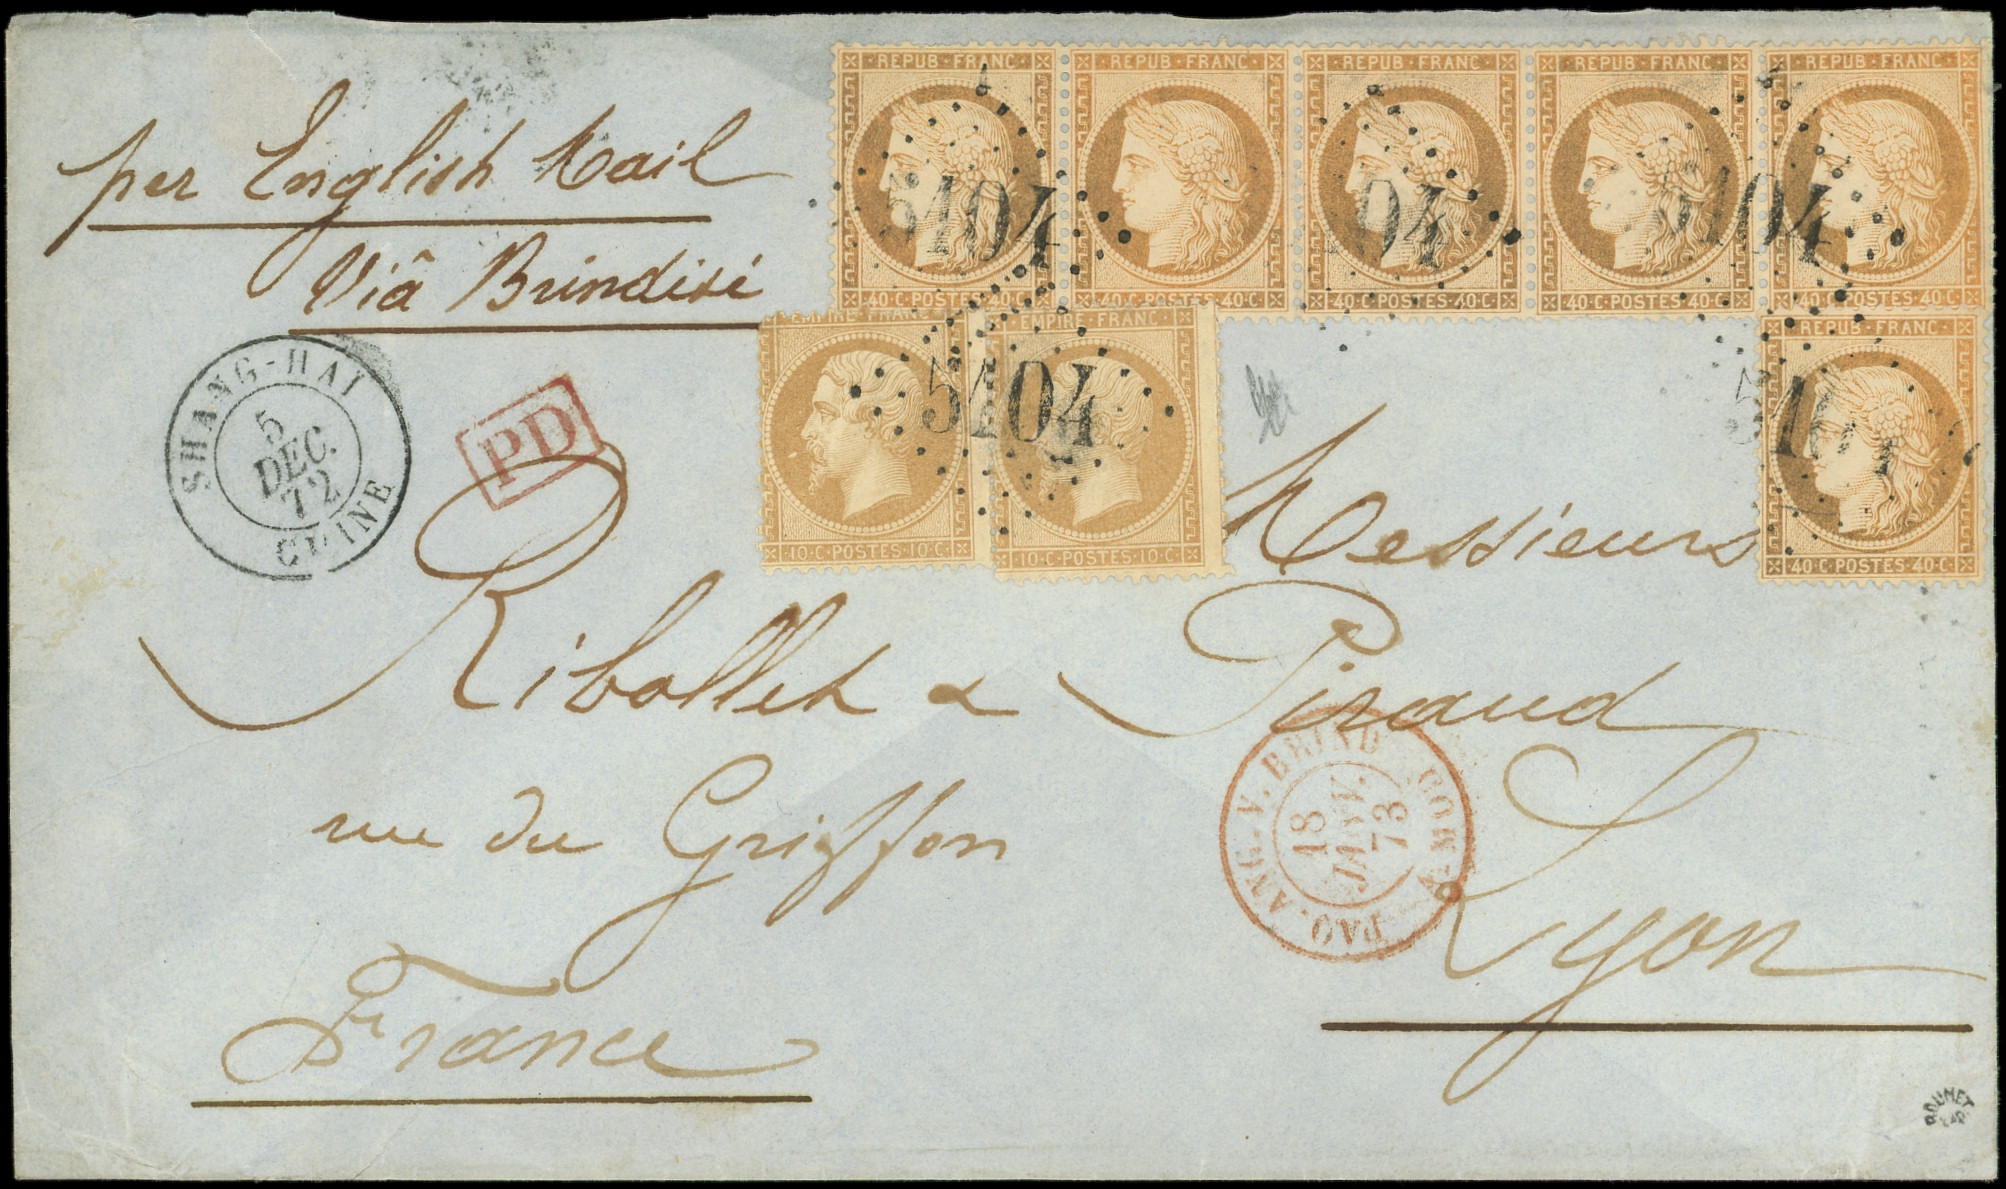 per English Mail
Viâ Brindisi
REPUB·FRANC·
40·C·POSTES·40·C·
REPUB·FRANC·
40·C·POSTES·40·C·
REPUB·FRANC·
40·C·POSTES·40·C·
REPUB·FRANC·
40·C·POSTES·40·C·
REPUB·FRANC·
40·C·POSTES·40·C·
5104
104
5104
EMPIRE·FRANC·
10·C·POSTES·10·C·
EMPIRE·FRANC·
10·C·POSTES·10·C·
5104
REPUB·FRANC·
40·C·POSTES·40·C·
SHANG-HAI
5
DEC.
72
CHINE
PD
Messieurs
Ribollet & Piraud
rue du Griffon
Lyon
France
PAQ. ANG. V. BRIND
18
JANV.
73
ROUMET